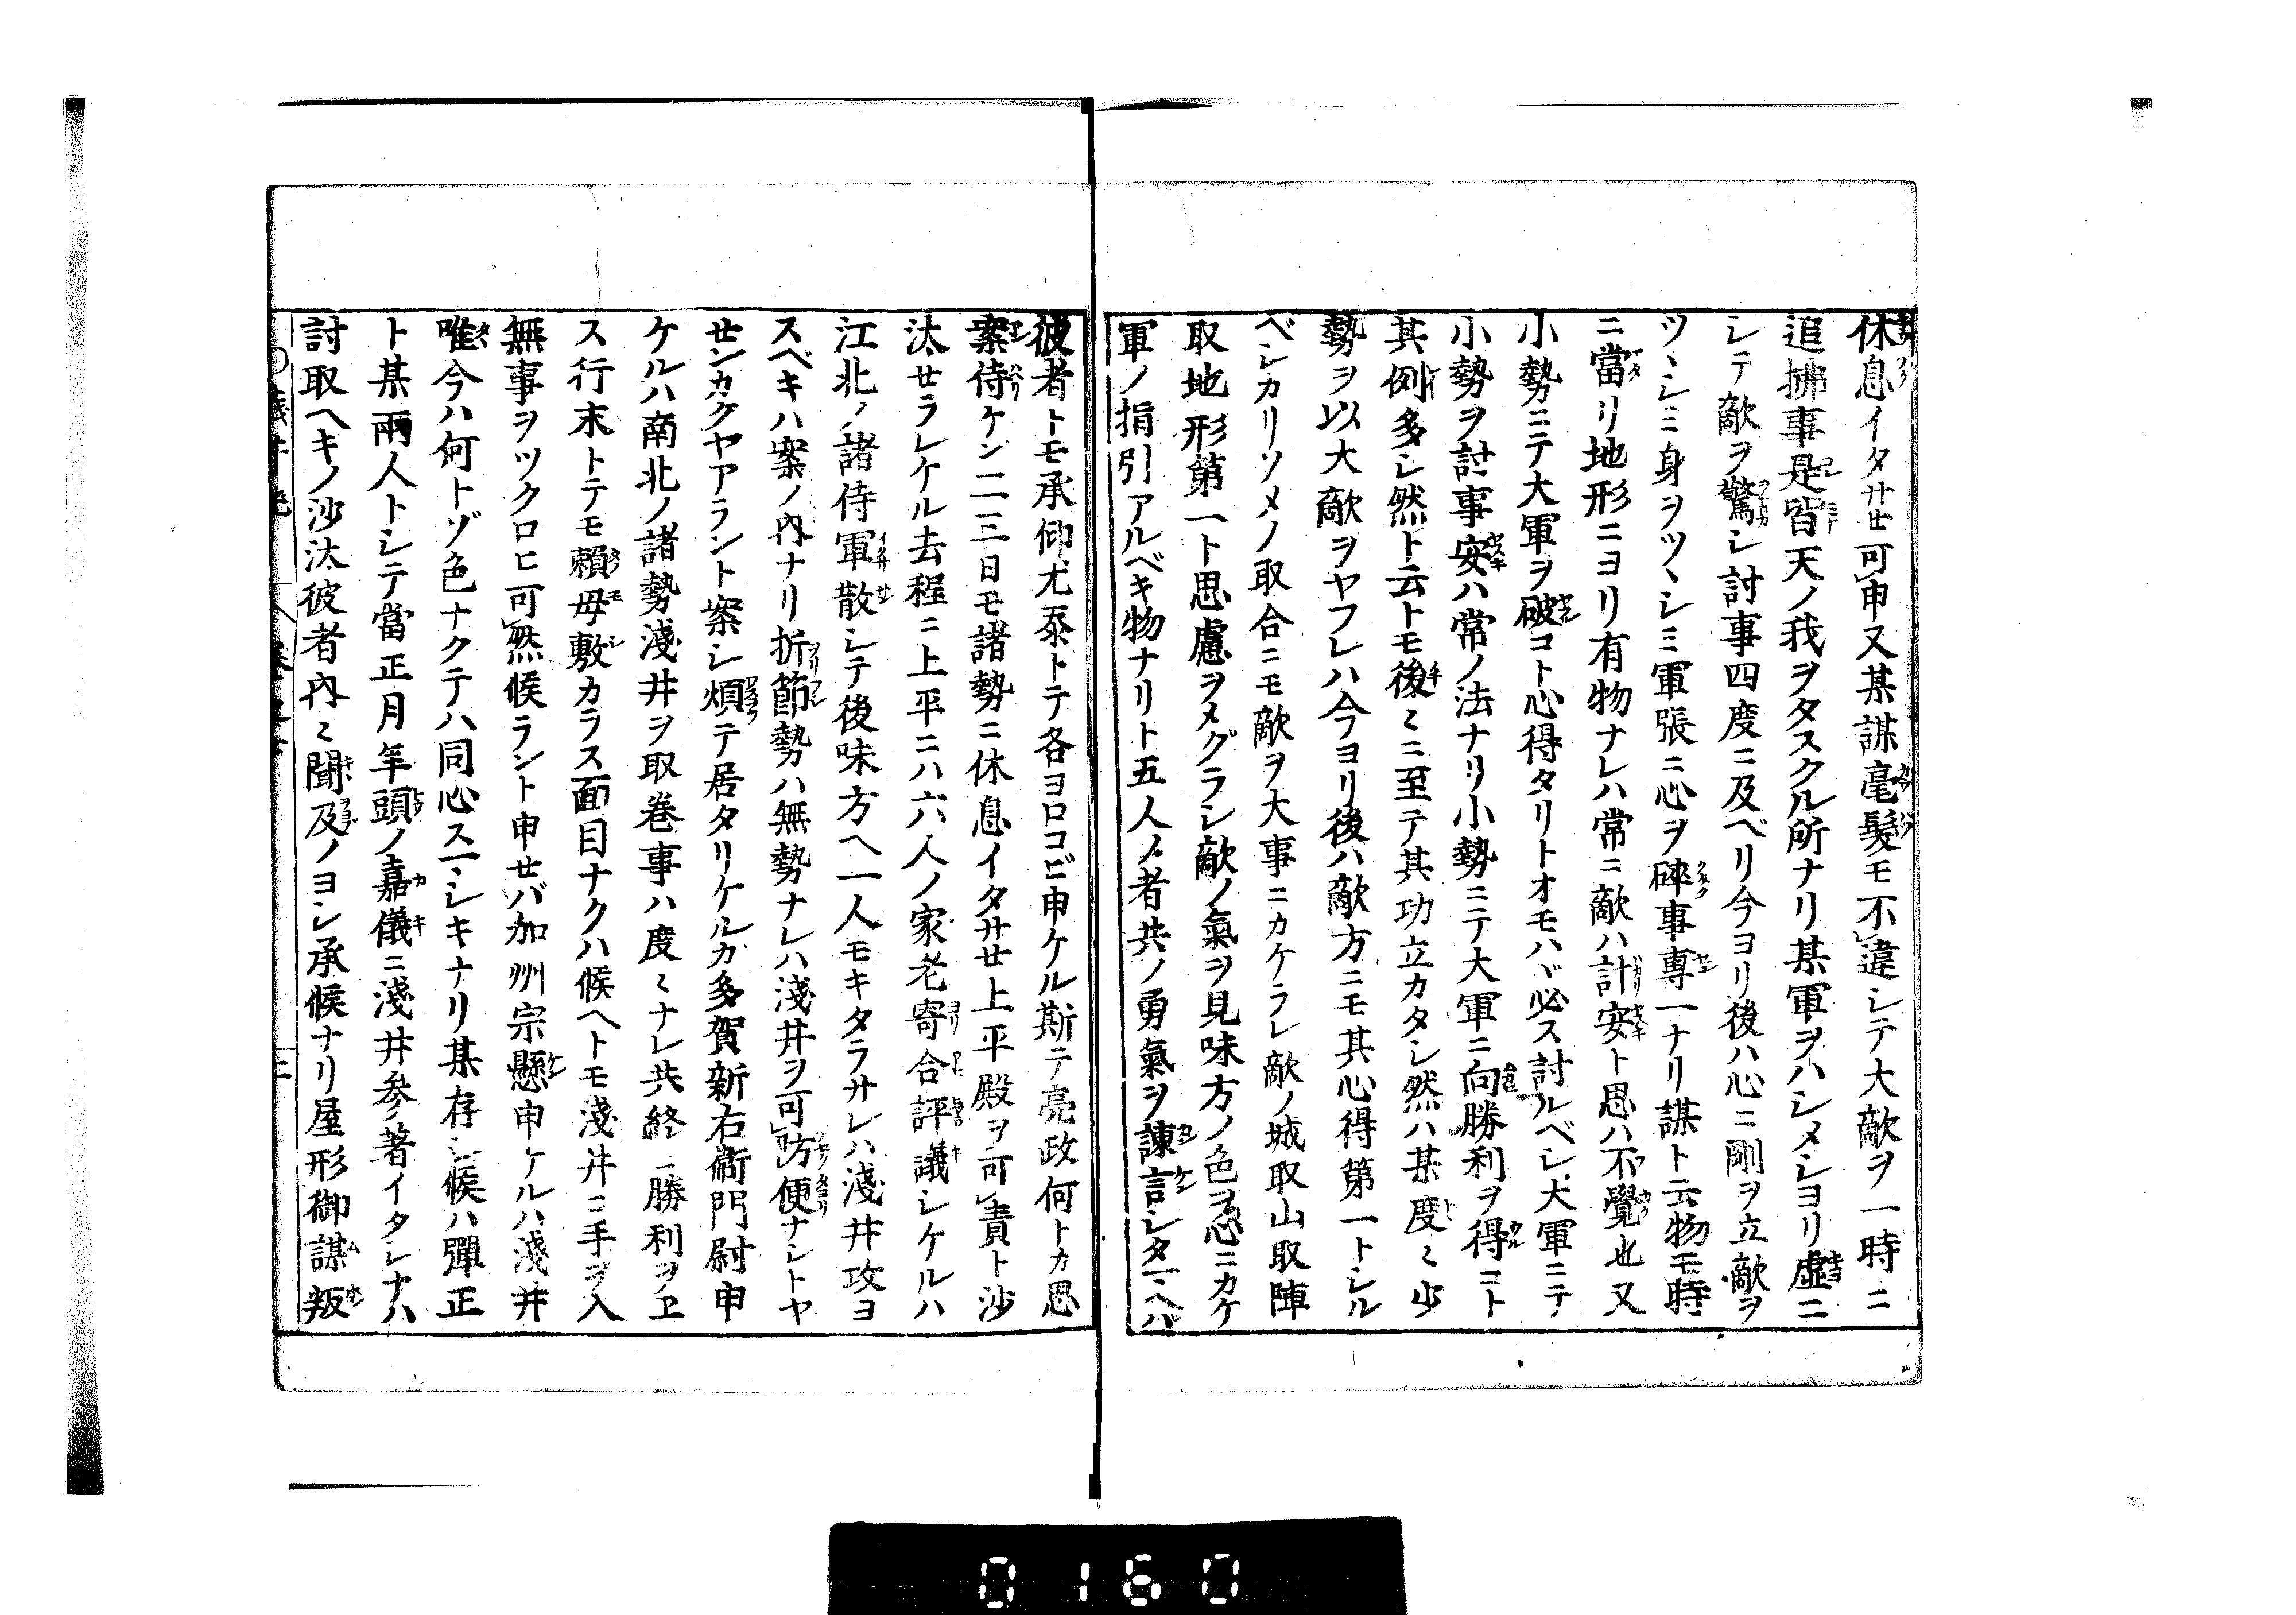 休息イタサセ可申又某謀毫髪モ不違シテ大敵ヲ一時ニ
追拂事是皆天ノ我ヲタスクル所ナリ某軍ヲハシメシヨリ虚ニ
シテ敵ヲ驚シ討事四度ニ及ベリ今ヨリ後ハ心ニ剛ヲ立敵ヲ
ツヽシミ身ヲツヽシミ軍張ニ心ヲ碎事専一ナリ謀ト云物モ時
ニ當リ地形ニヨリ有物ナレハ常ニ敵ハ計安ト思ハ不覺也又
小勢ニテ大軍ヲ破コト心得タリトオモハヾ必ス討ルベシ大軍ニテ
小勢ヲ討事安ハ常ノ法ナリ小勢ニテ大軍ニ向勝利ヲ得コト
其例多シ然ト云トモ後々ニ至テ其功立カタシ然ハ某度々少
勢ヲ以大敵ヲヤフレハ今ヨリ後ハ敵方ニモ其心得第一トシル
ベシカリソメノ取合ニモ敵ヲ大事ニカケラレ敵ノ城取山取陣
取地形第一ト思慮ヲメグラシ敵ノ氣ヲ見味方ノ色ヲ心ニカケ
軍ノ損引アルベキ物ナリト五人ノ者共ノ勇氣ヲ諌言シタマヘバ
彼者トモ承仰尤忝トテ各ヨロコビ申ケル斯テ亮政何トカ思
案侍ケン二三日モ諸勢ニ休息イタサセ上平殿ヲ可責ト沙
汰セラレケル去程ニ上平ニハ六人ノ家老寄合評議シケルハ
江北ノ諸侍軍散シテ後味方ヘ一人モキタラサレハ淺井攻ヨ
スベキハ案ノ内ナリ折節勢ハ無勢ナレハ淺井ヲ可防便ナシトヤ
センカクヤアラント案シ煩テ居タリケルカ多賀新右衞門尉申
ケルハ南北ノ諸勢淺井ヲ取巻事ハ度々ナレ共終ニ勝利ヲヱ
ス行末トテモ頼母敷カラス面目ナクハ候ヘトモ淺井ニ手ヲ入
無事ヲツクロヒ可然候ラント申セバ加州宗懸申ケルハ淺井
唯今ハ何トゾ色ナクテハ同心スマシキナリ某存シ候ハ彈正
ト某兩人トシテ當正月年頭ノ嘉儀ニ淺井参著イタシナハ
討取ヘキノ沙汰彼者内々聞及ノヨシ承候ナリ屋形御謀叛